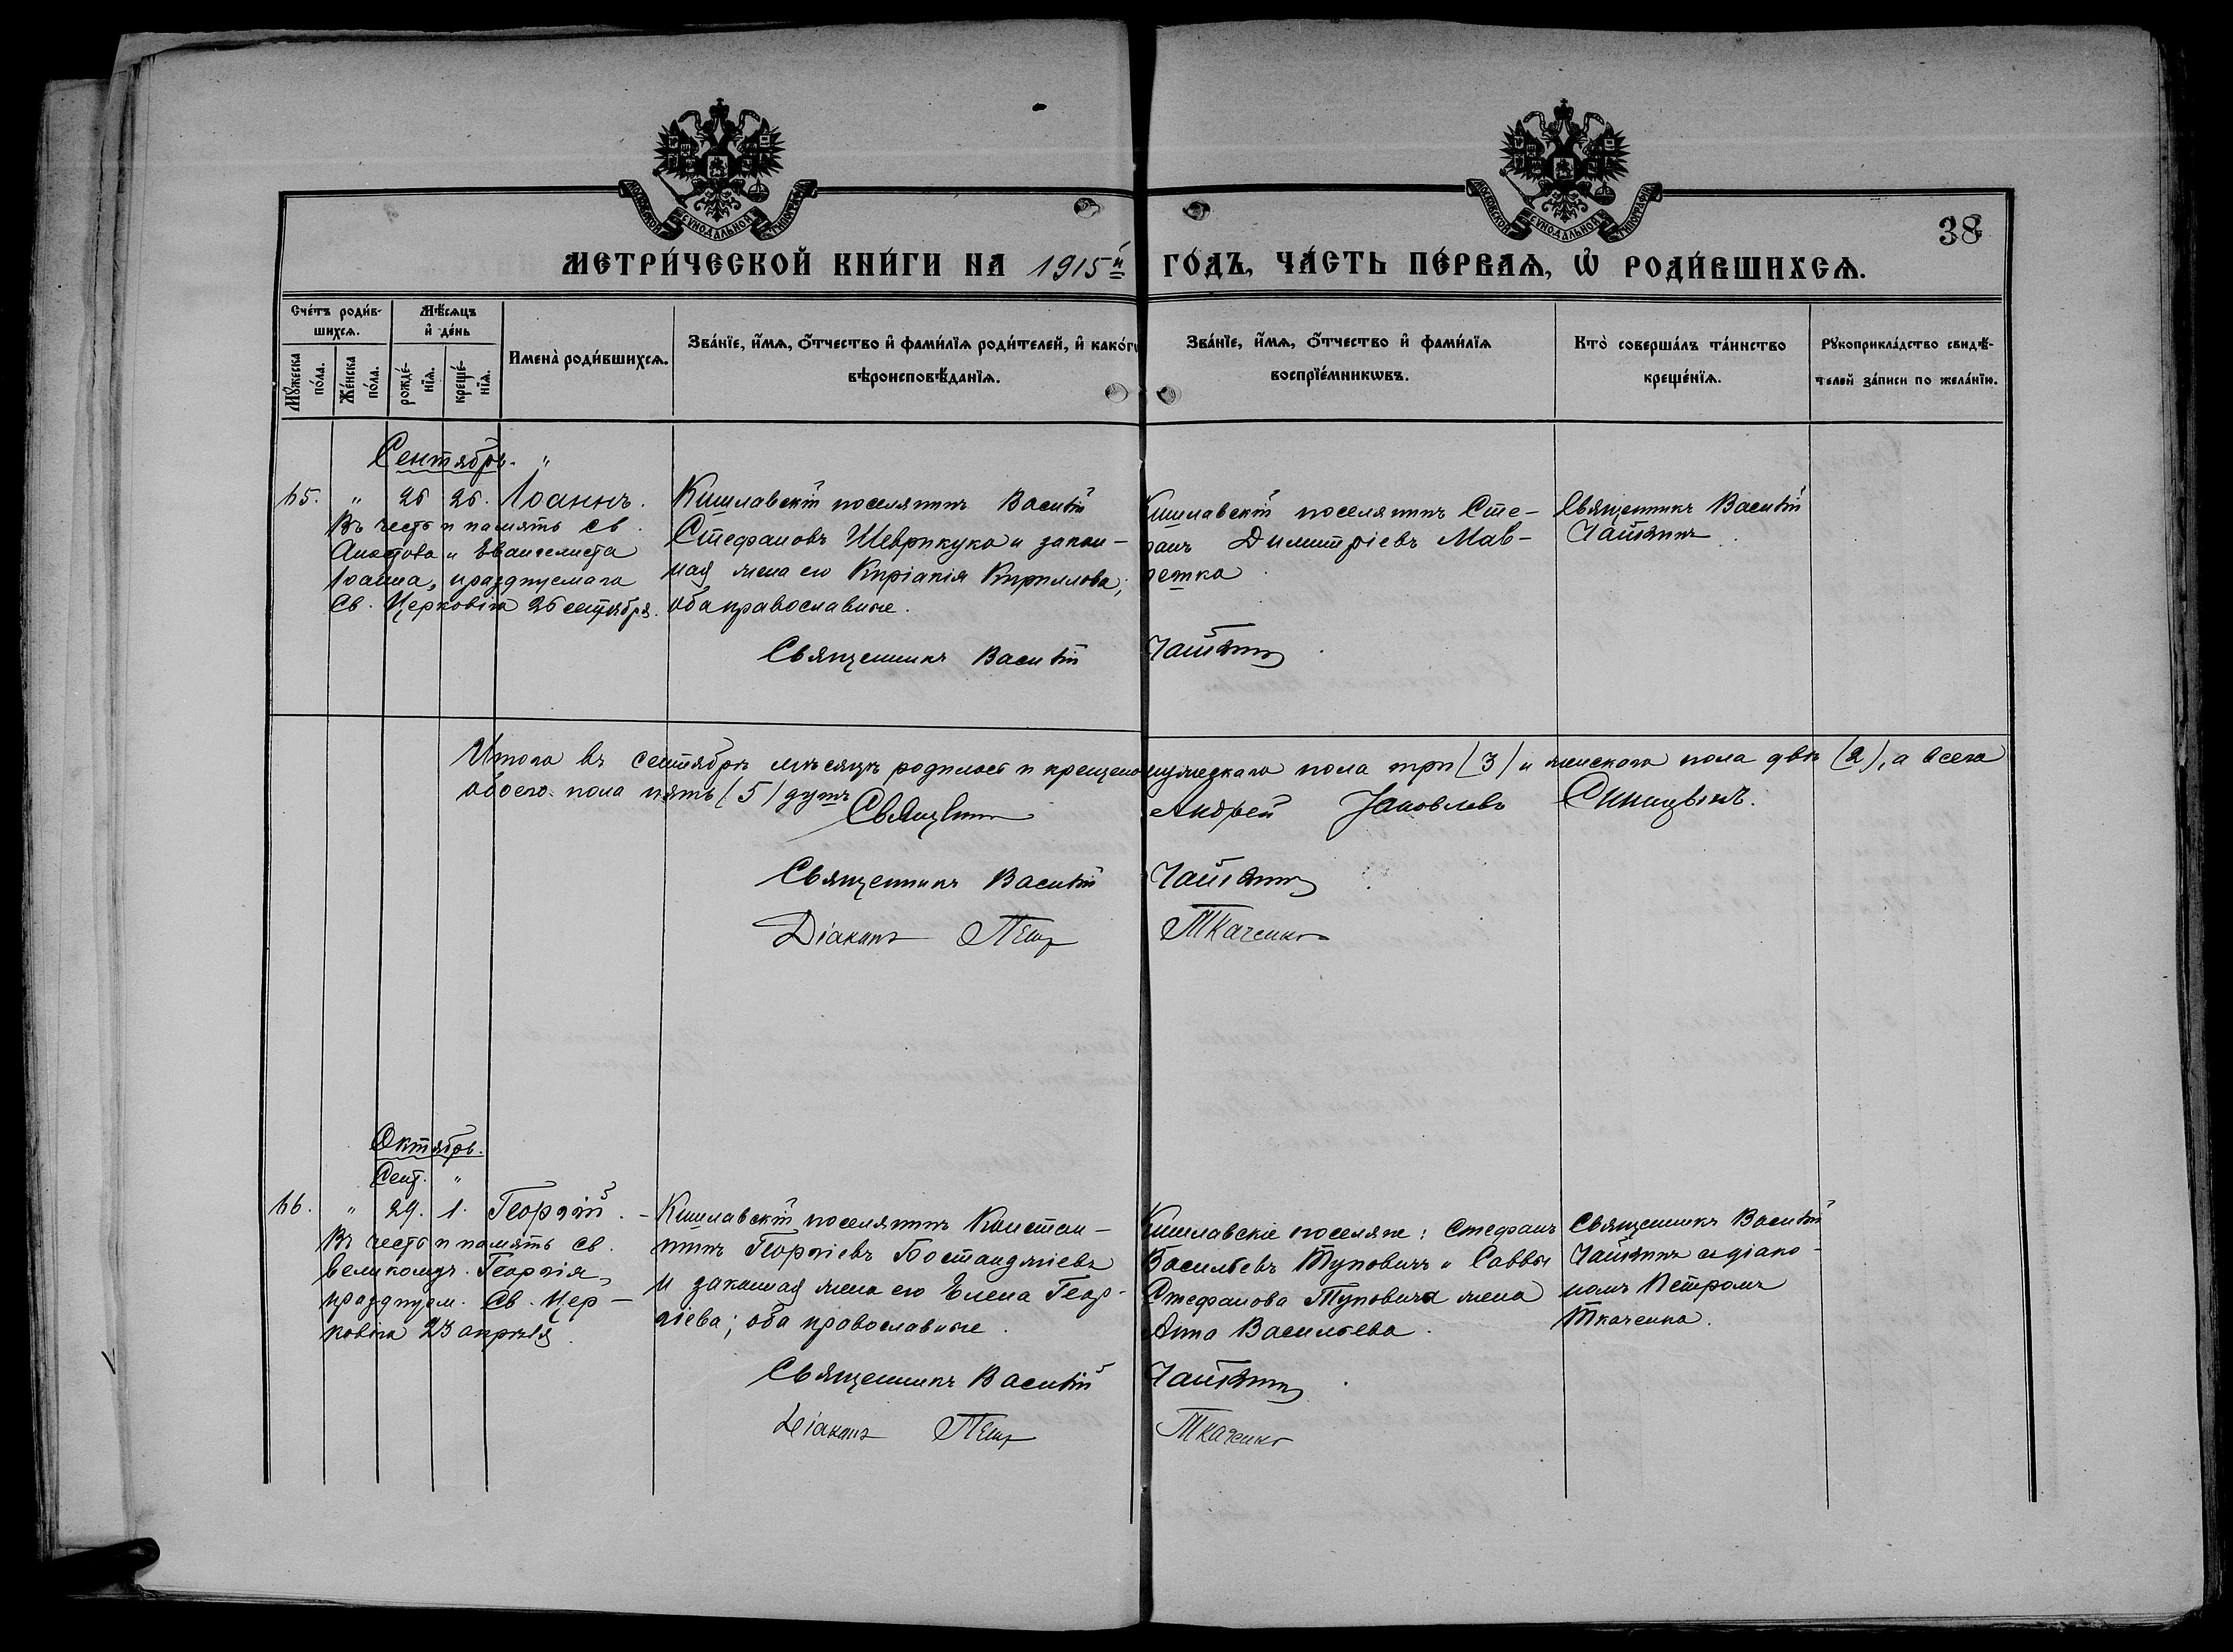 МОСКОВСКОЙ СѴНОДАЛЬНОЙ ТИПОГРАФІИ
МОСКОВСКОЙ СѴНОДАЛЬНОЙ ТИПОГРАФІИ
38
МЕТРИ́ЧЕСКОЙ КНИ́ГИ НА 1915й ГО́ДЪ, ЧА́СТЬ ПЕ́РВАѦ, Ѡ҆ РОДИ́ВШИХСѦ.
Сче́тъ роди́в-
шихсѧ.
Мꙋ́жеска по́ла.
Же́нска по́ла.
Мѣ́сѧцъ
и҆ де́нь
рожде́-
нїѧ.
креще́-
нїѧ.
Имена̀ роди́вшихсѧ.
Зва́нїе, и҆́мѧ, ѻ҆́тчество и҆ фами́лїѧ роди́телей, и҆ како́гѡ
вѣроисповѣ́данїѧ.
Зва́нїе, и҆́мѧ, ѻ҆́тчество и҆ фами́лїѧ
воспрїе́мникѡвъ.
Кто̀ соверша́лъ та́инство
креще́нїѧ.
Рꙋкоприкла́дство свидѣ́-
телей за́писи по жела́нїю.
Сентябрь. "
65. " 26 26. Іоаннъ.
Въ честь и память св.
Апостола и Евангелиста
Іоанна, празднуемаго
Св. Церковію 26 сентября.
Кишлавскій поселянинъ Василій
Стефановъ Шеврикуко и закон-
ная жена его Киріакія Кириллова;
оба православные.
Кишлавскій поселянинъ Сте-
фанъ Димитріевъ Мав-
Священникъ Василій
Священникъ Василій
Итого въ сентябрѣ мѣсяцѣ родилось и крещено мужескаго пола три (3) и женскаго пола двѣ (2), а всего
обоего пола пять (5) душъ
Священникъ Андрей Іаковлевъ
Священникъ Василій
Діаконъ Петръ Ткаченко
Октябрь.
Сент. "
66. " 29. 1. Георгій.
Въ честь и память св.
великомуч. Георгія,
празднуем. Св. Цер-
ковію 23 апрѣля.
Кишлавскій поселянинъ Констан-
тинъ Георгіевъ Бостанджіевъ
и законная жена его Елена Геор-
гіева; оба православные.
Кишлавскіе поселяне: Стефанъ
Васильевъ Туповичъ и Саввы
Стефанова Туповича жена
Анна Васильева.
Священникъ Василій
съ діако-
номъ Петромъ
Ткаченко.
Священникъ Василій
Діаконъ Петръ Ткаченко